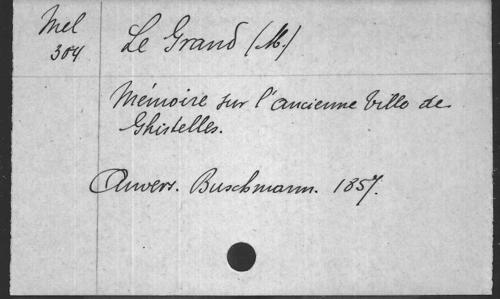 Mel
304
Le Grand (M.)
Mémoire sur l'ancienne Ville de
Ghistelles.
Anvers. Buschmann. 1857.